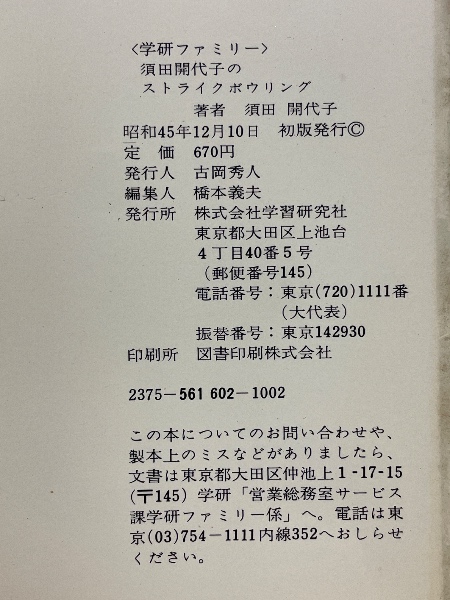 〈学研ファミリー〉
須田開代子の
ストライクボウリング
著者 須田 開代子
昭和45年12月10日 初版発行©
定 価 670円
発行人 古岡秀人
編集人 橋本義夫
発行所 株式会社学習研究社
東京都大田区上池台
4丁目40番5号
(郵便番号145)
電話番号:東京(720)1111番
(大代表)
振替番号:東京142930
印刷所 図書印刷株式会社
2375-561 602-1002
この本についてのお問い合わせや、
製本上のミスなどがありましたら、
文書は東京都大田区仲池上1-17-15
(〒145) 学研「営業総務室サービス
課学研ファミリー係」へ。電話は東
京(03)754-1111内線352へおしらせ
ください。